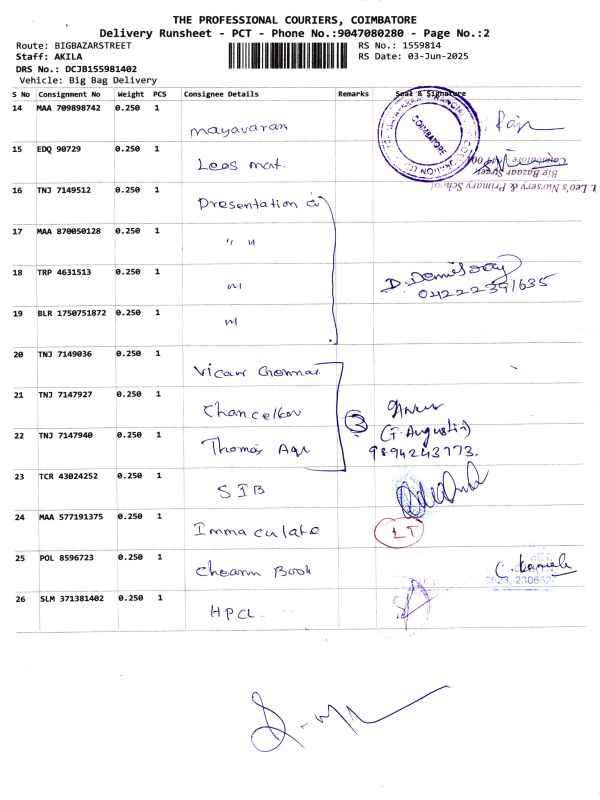 THE PROFESSIONAL COURIERS, COIMBATORE
Delivery Runsheet - PCT - Phone No.:9047080280 - Page No.:2
Route: BIGBAZARSTREET
RS No.: 1559814
Staff: AKILA
RS Date: 03-Jun-2025
DRS No.: DCJB155981402
Vehicle: Big Bag Delivery
S No Consignment No Weight PCS Consignee Details Remarks Seal & Signature
14 MAA 709898742 0.250 1 Mayavaran
COIMBATORE
15 EDQ 90729 0.250 1 Leos mat.
Leo's Nursery & Primary School
Big Bazaar Street
Coimbatore
16 TNJ 7149512 0.250 1 Presentation
17 MAA 870050128 0.250 1 " "
18 TRP 4631513 0.250 1 "
04222391635
19 BLR 1750751872 0.250 1 "
20 TNJ 7149036 0.250 1 Vicar
21 TNJ 7147927 0.250 1 Chancellor
3
(T. Augustin)
22 TNJ 7147940 0.250 1 Thomas
9894243773.
23 TCR 43024252 0.250 1 SIB
24 MAA 577191375 0.250 1 Immaculate
LT
25 POL 8596723 0.250 1 Cheann Book
26 SLM 371381402 0.250 1 HPCL